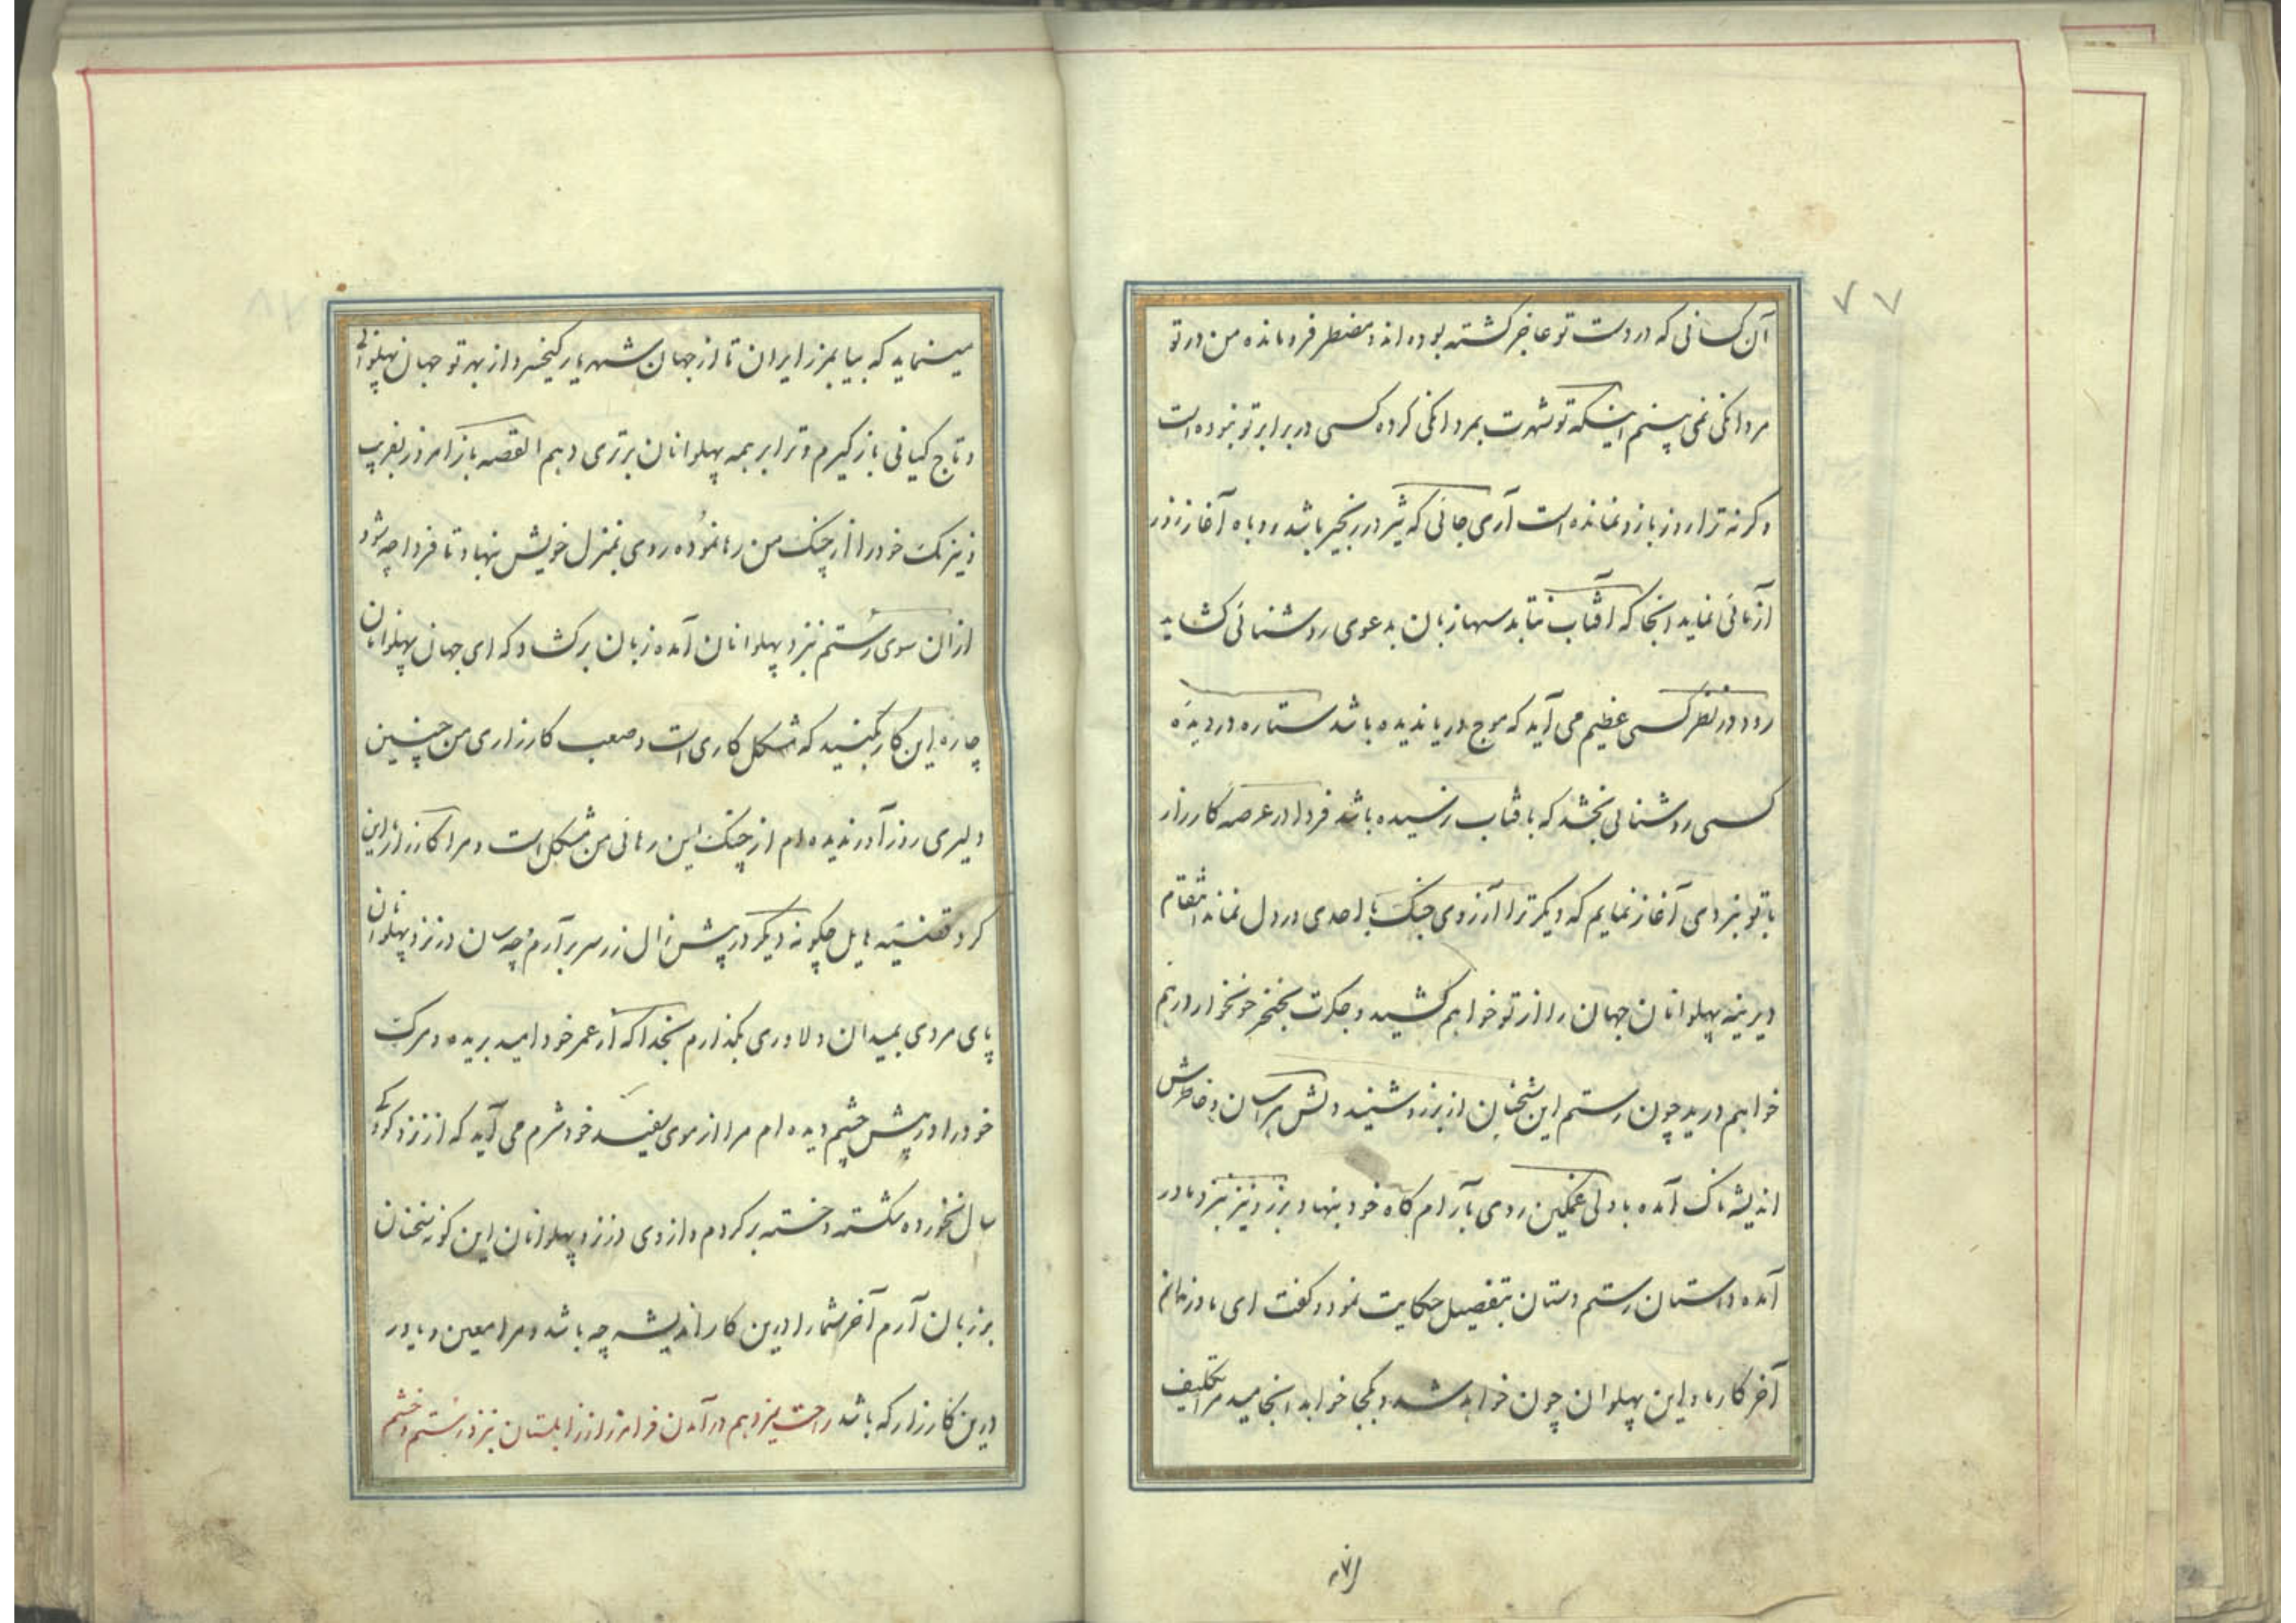 ۷۷
آن کسانی که در دست تو عاجز کشته بوده اند و مضطر فرو مانده من در تو
مردانکی نمی بینم اینکه تو شهرت بمردانکی کرده کسی در برابر تو نبوده است
وکرنه ترا روز بازو نمانده است آری جائی که شیر در زنجیر باشد روباه آغاز زور
آزمائی نماید آنجا که آفتاب نتابد سها زبان بدعوی روشنائی کشاید
رود در نظر کسی عظیم می آید که موج دریا ندیده باشد ستاره در دیده
کسی روشنائی بخشد که بافتاب نرسیده باشد فردا در عرصه کارزار
با تو نبردی آغاز نمایم که دیکر ترا آرزوی جنک با احدی در دل نماند انتقام
دیرینه پهلوانان جهان را از تو خواهم کشید و جکرت بخنجر خونخوار از هم
خواهم درید چون رستم این سخنان از برزو شنید دلش هراسان و خاطرش
اندیشه ناک آمده با دلی غمکین روی بآرام کاه خود بنهاد و برزو نیز نزد مادر
آمده داستان رستم دستان بتفصیل حکایت نمود و کفت ای مادر ندانم
آخر کار ما و این پهلوان چون خواهد شد و بکجا خواهد انجامید مرا تکلیف
مینماید که بیا بمرز ایران تا از جهان شهریار کیخسرو از بهر تو جهان پهلوانی
و تاج کیانی باز کیرم و ترا بر همه پهلوانان برتری دهم القصه باز امروز بفریب
و نیرنک خود را از چنک من رها نموده روی بمنزل خویش بنهاد تا فردا چه شود
از آن سوی رستم نزد پهلوانان آمده زبان برکشاد که ای جهان پهلوانان
چاره این کار بکنید که مشکل کاری است و صعب کارزاری من چنین
دلیری روز آور ندیده ام از چنک این رهائی من مشکل است و مرا کارزار این
کرد قضیه هایل چکونه دیکر در پیش زال زر سر بر آرم و چه سان در نزد پهلوانان
پای مردی بمیدان دلاوری بکذارم بخدا که از عمر خود امید بریده و مرک
خود را در پیش چشم دیده ام مرا از موی سفید خود شرم می آید که از نزد کودکی
سال نخورده شکسته و خسته برکردم و از وی در نزد پهلوانان این کونه سخنان
بر زبان آرم آخر شما را درین کار اندیشه چه باشد و مرا معین و یاور
درین کارزار که باشد در آمدن فرامرز از زابلستان نزد رستم و خشم